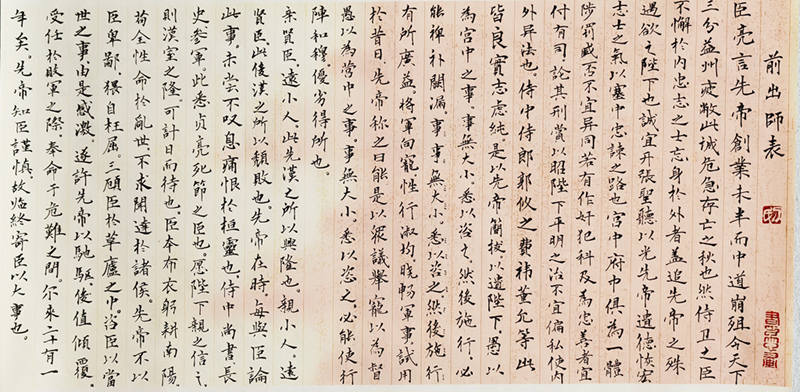 前出師表
臣亮言先帝創業未半而中道崩殂今天下
三分益州疲敝此誠危急存亡之秋也然侍卫之臣
不懈於內忠志之士忘身於外者盖追先帝之殊
遇欲之陛下也誠宜开張聖聽以光先帝遺德恢宏
志士之氣以塞中忠諫之路也宮中府中俱為一體
陟罚臧否不宜异同若有作奸犯科及為忠善者宜
付有司論其刑賞以昭陛下平明之治不宜偏私使內
外异法也。侍中侍郎郭攸之費祎董允等此
皆良實志慮純。是以先帝簡拔以遺陛下。愚以
為宮中之事。事無大小悉以咨之。然後施行。必
能裨补闕漏事。事無大小。悉以咨之然後施行
有所廣益。将軍向寵性行淑均晓暢軍事。試用
於昔日。先帝称之曰能是以眾議舉寵以為督
愚以為营中之事。事無大小。悉以咨之。必能使行
陣和穆優劣得所也。
亲賢臣。遠小人。此先漢之所以興隆也。親小人遠
賢臣。此後漢之所以頹敗也。先帝在時。每與臣論
此事。未尝不叹息痛恨於桓靈也。侍中尚書長
史参軍。此悉贞亮死節之臣也。愿陛下親之信之
則漢室之隆。可計日而待也。臣本布衣躬耕南陽
苟全性命於亂世不求聞達於諸侯。先帝不以
臣卑鄙猥自枉屈。三顧臣於草廬之中。咨臣以當
世之事。由是感激。遂許先帝以馳驅。後值傾覆。
受任於敗軍之際。奉命于危難之間。尔来二十有一
年矣。先帝知臣謹慎。故临終寄臣以大事也。